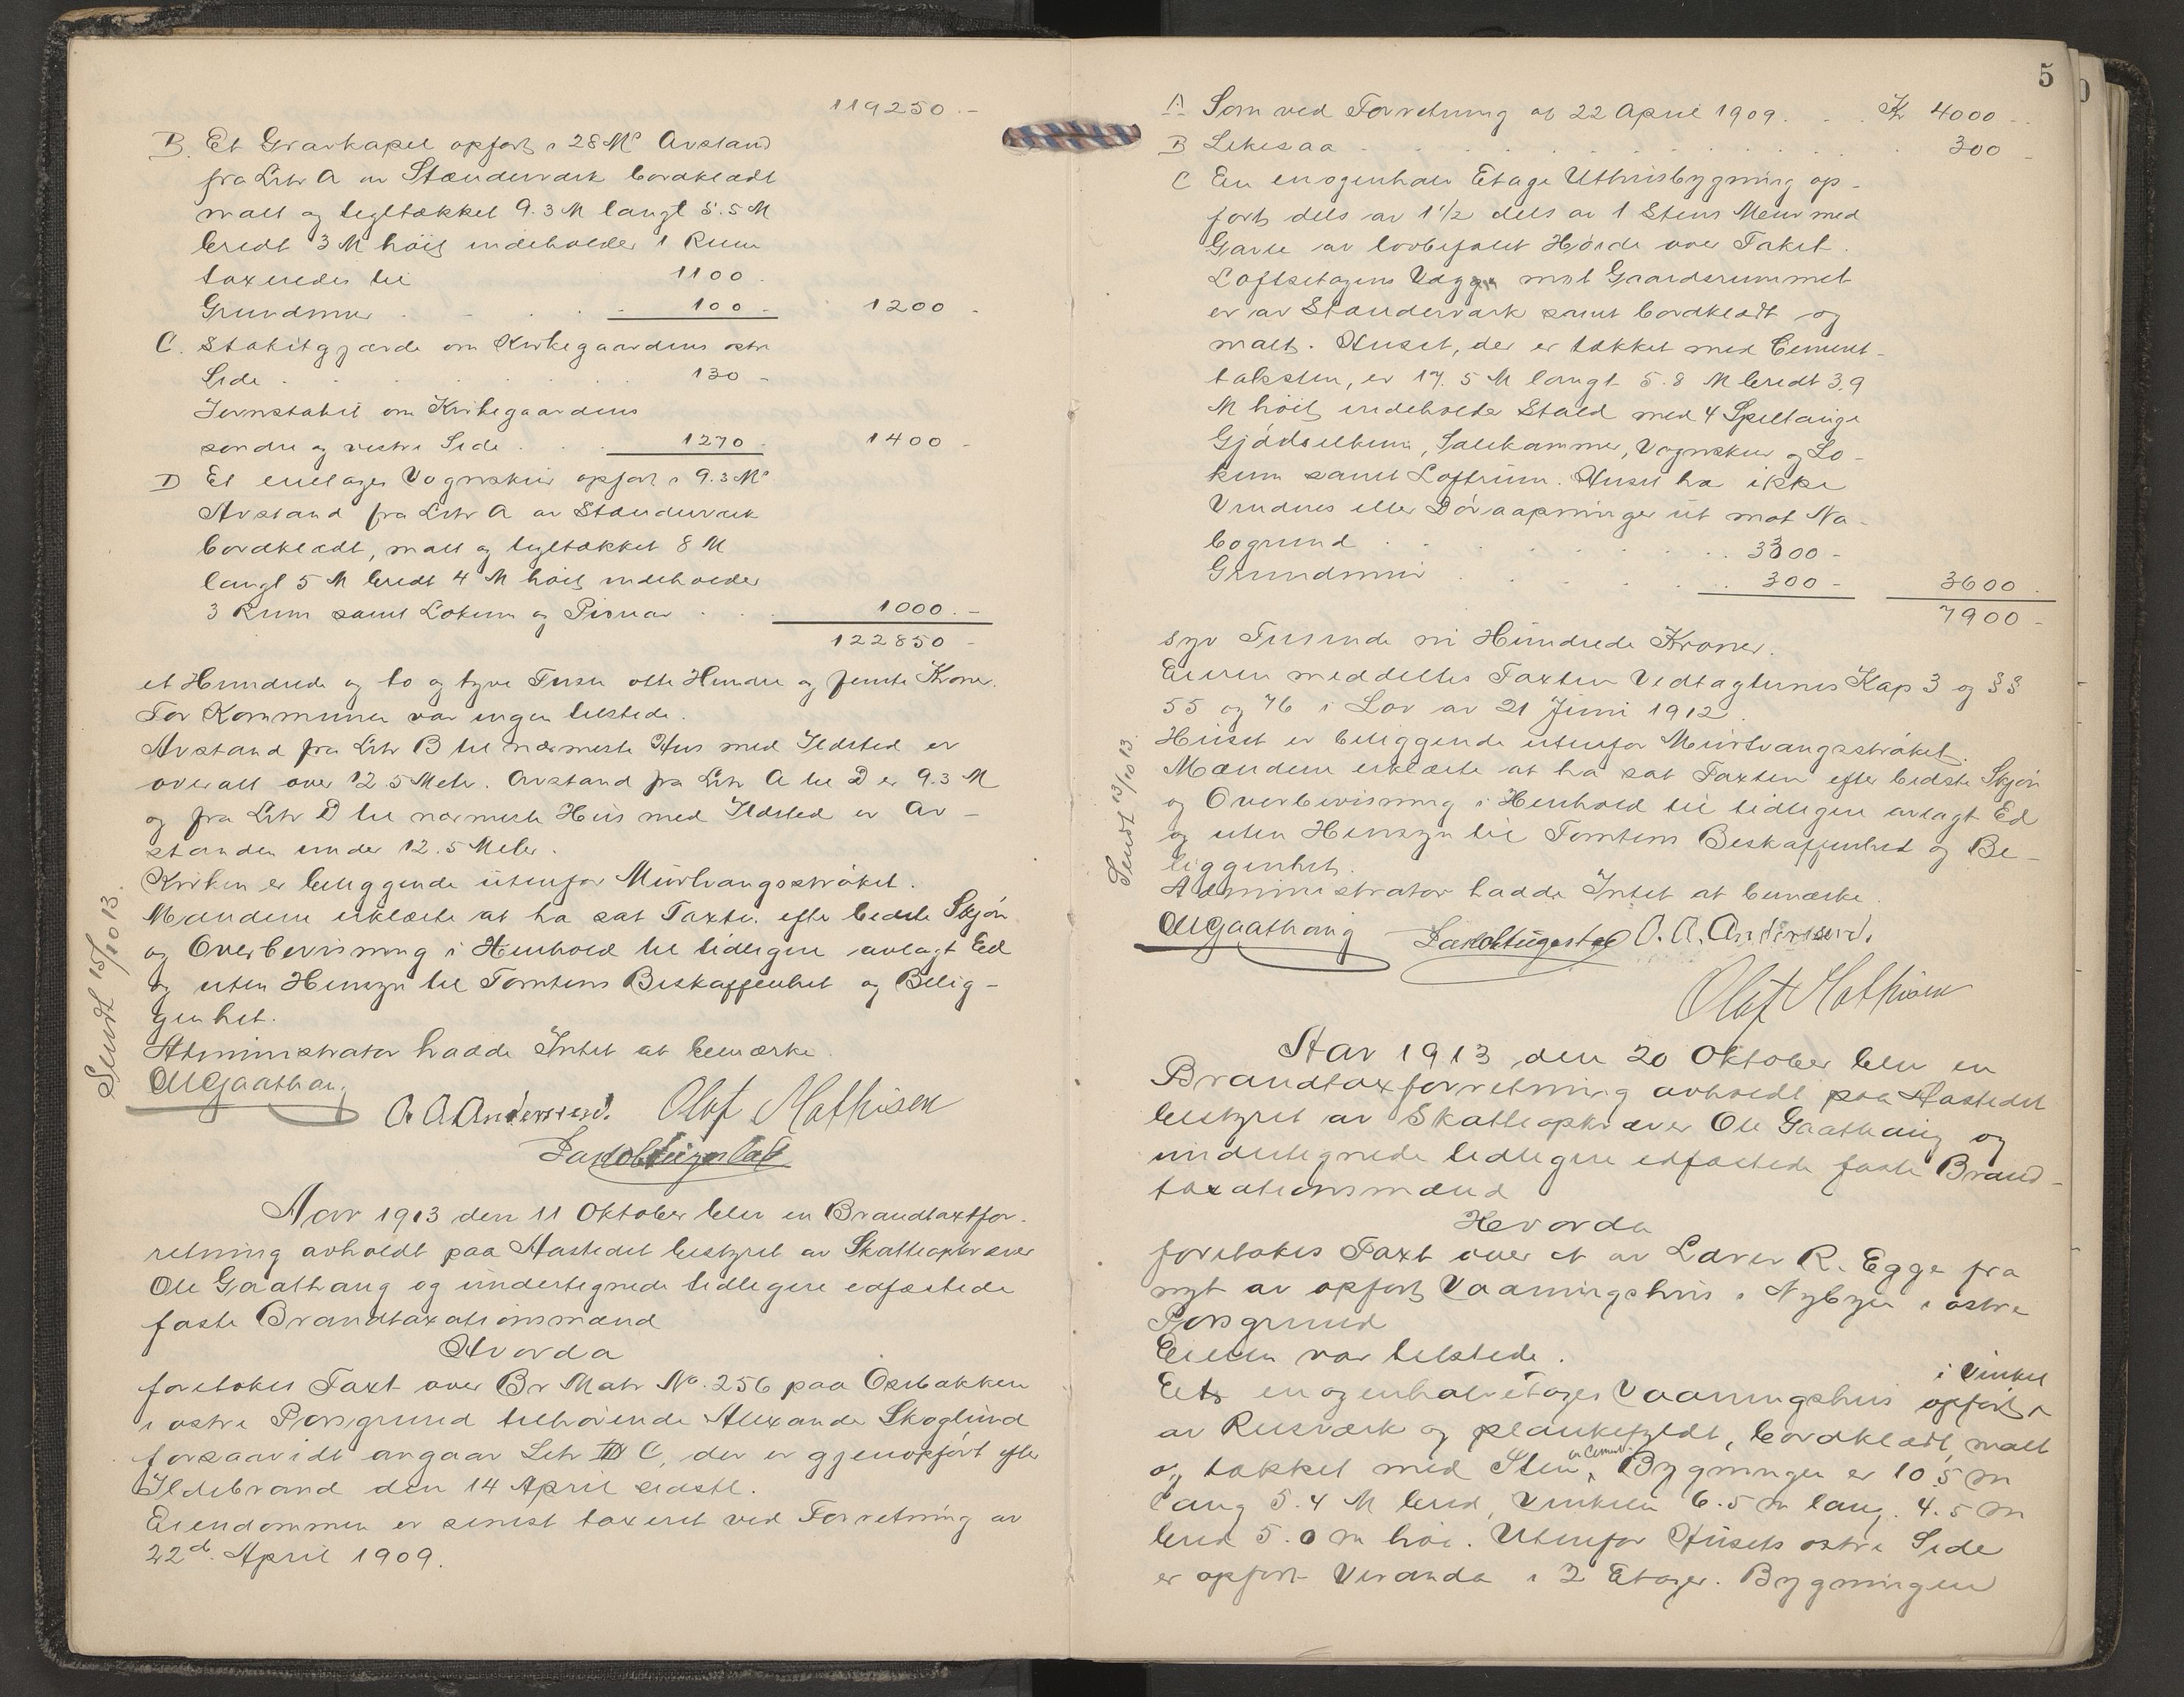 119250.-
B. Et Gravkapel opfört i 28 Ms Avstand
fra Litr A av Stænderværk bordklædt
malt og tegltækket 9.3 M langt 5.5 M
bredt 3 M höit indeholder 1 Rum
taxeredes til 1100.
Grundmur . . . . 100 - 1200 -
C. Stakitgjærde om Kirkegaardens östre
Side . . . . . . . 130 -
Jernstakit om Kirkegaardens
söndre og vestre Side . . . 1270 - 1400 -
D Et enetages Vognskur opfört i 9.3 Ms
Avstand fra Litr A av Stænderværk
bordklædt, malt og tegltækket 8 M
langt 5 M bredt 4 M höit indeholder
3 Rum samt Lokum og Pissoar . . . 1000.-
122850 -
et Hundrede og to og tyve Tusen otte Hundre og femti Kroner.
For Kommunen var ingen tilstede.
Avstand fra Litr B til nærmeste Hus med Ildsted er
overalt over 12 5 Meter. Avstand fra Litr A til D er 9.3 M
og fra Litr D til nærmeste Hus med Ildsted er Av-
standen under 12.5 Meter.
Kirken er beliggende utenfor Murtvangsströket.
Mændene erklærte at ha sat Taxten efter bedste Skjön
og Overbevisning i Henhold til tidligere avlagt Ed
og uten Hensyn til Tomtens Beskaffenhet og Belig-
genhet.
Administrator hadde Intet at bemærke.
Ole Gaathaug
A. A. Andersen. Olaf Mathisen
Sendt 15/10 13.
Aar 1913 den 11 Oktober blev en Brandtaxtfor-
retning avholdt paa Aastedet bestyret av Skatteopkræver
Ole Gaathaug og undertegnede tidligere edfæstede
faste Brandtaxationsmænd
Hvorda
foretokes Taxt over Br Matr No. 256 paa Osebakken
i östre Porsgrund tilhörende Alexander Skoglund
forsaavidt angaar Litr C, der er gjenopfört efter
Ildebrand den 14 April sidstl.
Eiendommen er senest taxeret ved Forretning av
22d. April 1909.
5
A Som ved Forretning av 22 April 1909. . . Kr 4000 -
B Likesaa . . . . . . . . . . 300 -
C En enogenhalv Etages Uthusbygning op-
fört dels av 1 1/2 dels av 1 Stens Mur med
Gavle av lovbefalet Höide over Taket.
Loftsetagens Vægge mot Gaardsrummet
er av Stænderværk samt bordklædt og
malt. Huset, der er tækket med Cement-
taksten, er 17.5 M langt 5.8 M bredt 3.9
M höit indeholder Stald med 4 Spiltauge
Gjödselkum, Salekammer, Vognskur og Lo-
kum samt Loftrum. Huset har ikke
Vindues eller Döraapninger ut mot Na-
bogrund . . . . . . 3300 -
Grundmur . . . . . 300 - 3600.
7900 -
syv Tusinde ni Hundrede Kroner.
Eieren meddeltes Taxten Vedtagternes Kap 3 og §§
55 og 76 i Lov av 21 Juni 1912.
Huset er beliggende utenfor Murtvangsströket.
Mændene erklærte at ha sat Taxten efter bedste Skjön
og Overbevisning i Henhold til tidligere avlagt Ed
og uten Hensyn til Tomtens Beskaffenhet og Be-
liggenhet.
Administrator hadde Intet at bemærke.
Ole Gaathaug A. A. Andersen.
Olaf Mathisen
Sendt 13/10 13.
Aar 1913 den 20 Oktober blev en
Brandtaxforretning avholdt paa Aastedet
bestyret av Skatteopkræver Ole Gaathaug og
undertegnede tidligere edfæstede faste Brand-
taxationsmænd
Hvorda
foretokes Taxt over et av Lærer R. Egge fra
nyt av opfört Vaaningshus i Nybyen i östre
Porsgrund
Eieren var tilstede.
Et enogenhalvetages Vaaningshus opfört i Vinkel
av Reisværk og plankefyldt, bordklædt, malt
og tækket med Sten av Cement. Bygningen er 10.5 m
lang 5.4 M bred, Vinkelen 6.5 m lang. 4.5 m
bred 5.0 m höi. Utenfor Husets östre Side
er opfört Veranda i 2 Etager. Bygningen